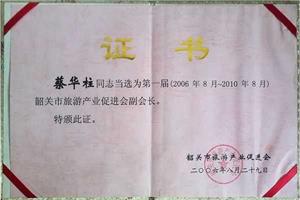 证书
蔡华柱同志当选为第一届(2006年8月~2010年8月)
韶关市旅游产业促进会副会长。
特颁此证。
韶关市旅游产业促进会
二〇〇六年八月二十九日